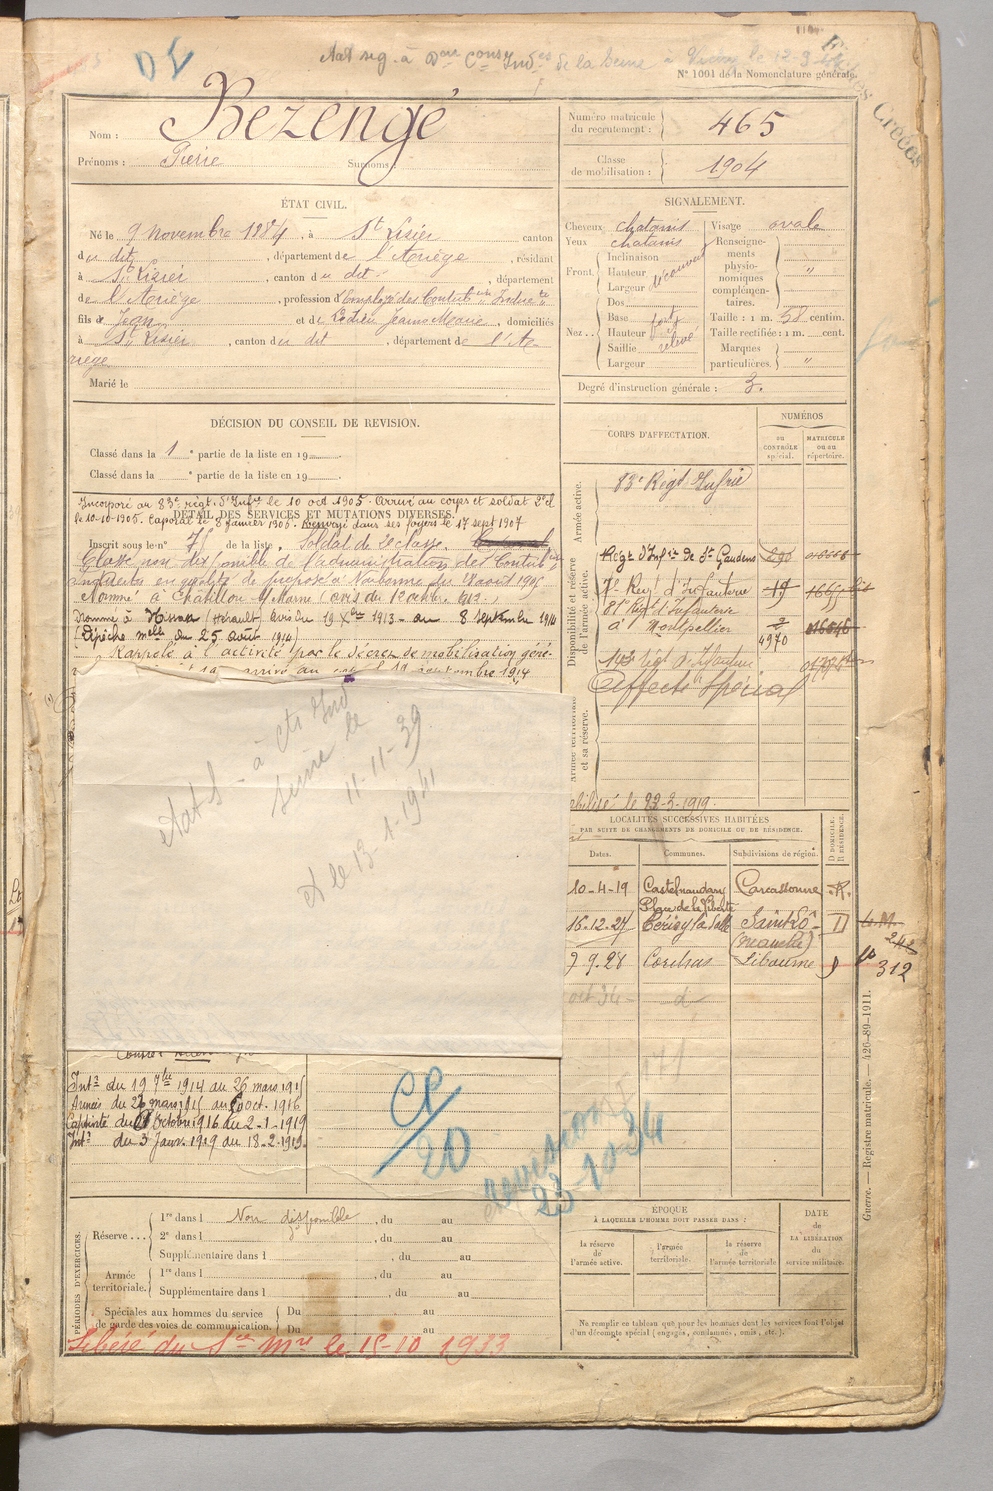 D L
N° 1001 de la Nomenclature générale.
Nom : Bezengé
Prénoms : Pierre Surnoms :
Numéro matricule du recrutement : 465
Classe de mobilisation : 1904
ÉTAT CIVIL.
Né le 9 novembre 1884, à St Lisier canton
du dit, département de l'Ariège, résidant
à St Lisier, canton du dit, département
de l'Ariège, profession d'Employé des Contrib
fils de Jean et de Jeanne Marie, domiciliés
à St Lisier, canton du dit, département de l'A-
riège
Marié le
SIGNALEMENT.
Cheveux chatains
Yeux chatains
Front. Inclinaison
Hauteur
Largeur
découvert
Nez. Dos
Base fort
Hauteur
Saillie relevé
Largeur
Visage ovale
Renseignements physionomiques complémentaires. "
Taille : 1 m. 58 centim.
Taille rectifiée : 1 m. cent.
Marques particulières. "
Degré d'instruction générale : 3.
DÉCISION DU CONSEIL DE REVISION.
Classé dans la 1 e partie de la liste en 19
Classé dans la e partie de la liste en 19
Incorporé au 83e régt. d'Infrie le 10 oct 1905. Arrivé au corps et soldat 2e cl
DÉTAIL DES SERVICES ET MUTATIONS DIVERSES.
le 10-10-1905. Caporal le 8 janvier 1905. Renvoyé dans ses foyers le 17 sept 1907
Inscrit sous le n° 71 de la liste. Soldat de 2e classe.
Classé non disponible de l'administration des Contribns
indirectes en qualité de préposé à Narbonne du 28 août 1905
Nommé à Chatillon s/ Marne (avis du 12
Nommé à Nissan (Hérault) avis du 19 Xbre 1913 — au 8 septembre 1914
(Dépêche mlle du 25 Août 1914)
Rappelé à l'activité par le décret de mobilisation géné-
arrivé au septembre 1914
CORPS D'AFFECTATION.
NUMÉROS
au CONTRÔLE spécial.
MATRICULE ou au répertoire.
Armée active.
83e Régt Infrie
Disponibilité et réserve de l'armée active.
Régt d'Infie de St Gaudens
7e Regt d'Infanterie 19
81e Régt d'Infanterie
à Montpellier
4970
143 régt d'Infanterie
Affecté Spécial
Armée territoriale et sa réserve.
le 22-3-1919.
Aat S - à Ctr Ind
Seine le
11-11-39
le 13-1-1941
LOCALITÉS SUCCESSIVES HABITÉES
PAR SUITE DE CHANGEMENTS DE DOMICILE OU DE RÉSIDENCE.
Dates. Communes. Subdivisions de région. D DOMICILE. R RÉSIDENCE.
10-4-19 Castelnaudary Carcassonne R.
Place de la Liberté
16.12.27 Cerisy la Salle Saint Lô D
(manche)
9.28 Libourne
312
oct 34 - d°
Intr du 19 7bre 1914 au 26 mars 1915
Armées du 26 mars 1915 au oct. 1916
Captivité du octobre 1916 au 2-1-1919
Intr du 3 Janv. 1919 au 18-2-1919
CP
20
revision
23-10-34
PÉRIODES D'EXERCICES.
Réserve... 1re dans l Non disponible, du au
2e dans l , du au
Supplémentaire dans l , du au
Armée territoriale. 1re dans l , du au
Supplémentaire dans l , du au
Spéciales aux hommes du service de garde des voies de communication. Du au
Du au
ÉPOQUE
À LAQUELLE L'HOMME DOIT PASSER DANS :
la réserve de l'armée active.
l'armée territoriale.
la réserve de l'armée territoriale
DATE de LA LIBÉRATION du service militaire.
Ne remplir ce tableau que pour les hommes dont les services font l'objet
d'un décompte spécial (engagés, condamnés, omis, etc.).
Libéré du Sce Mre le 15-10 1933
Guerre. — Registre matricule. 426-89-1911.